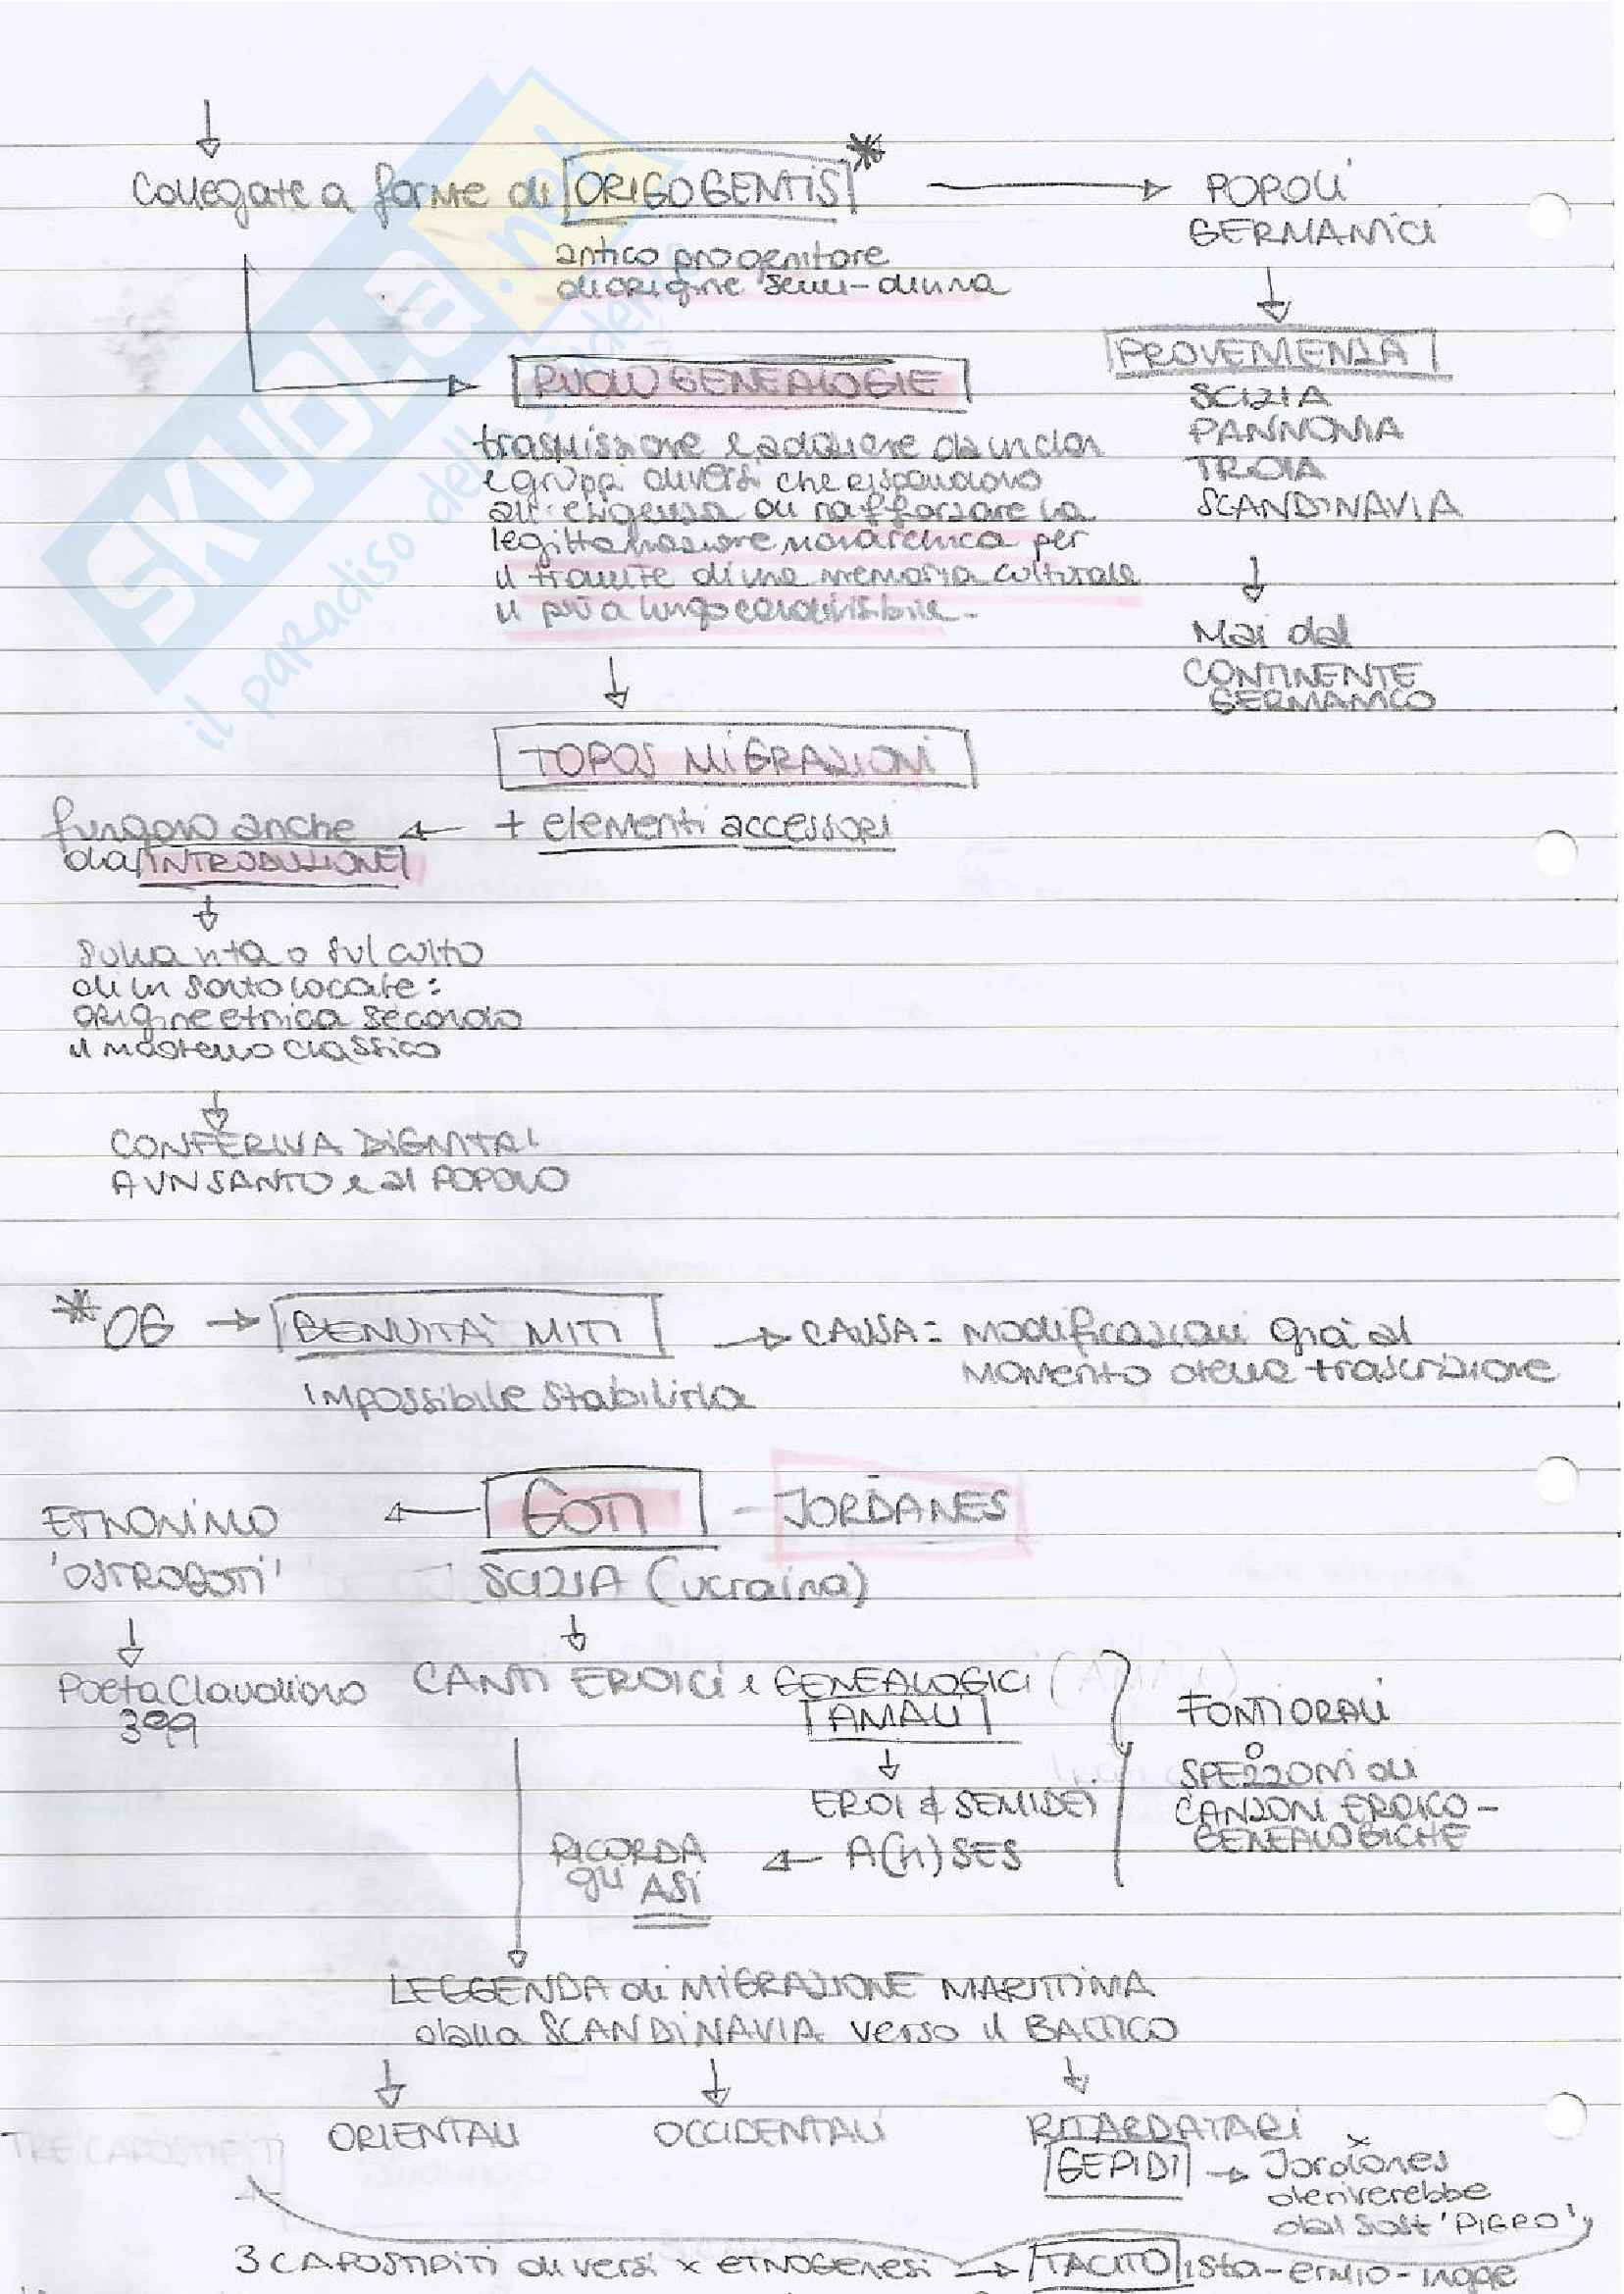 Collegate a forme di ORIGO GENTIS*
antico progenitore
di origine semi-divina
POPOLI
GERMANICI
PROVENIENZA
SCIZIA
PANNONIA
TROIA
SCANDINAVIA
Mai dal
CONTINENTE
GERMANICO
RUOLO GENEALOGIE
trasmissione e adozione da un clan
e gruppi diversi che rispondono
all'esigenza di rafforzare la
legittimazione monarchica per
il tramite di una memoria culturale
il più a lungo condivisibile.
TOPOS MIGRAZIONI
+ elementi accessori
fungono anche
da INTRODUZIONE
sulla vita o sul culto
di un santo locale:
origine etnica secondo
il modello classico
CONFERIVA DIGNITA'
A UN SANTO e al POPOLO
*OG
GENUITA' MITI
impossibile stabilirla
CAUSA: modificazioni già al
momento della trascrizione
GOTI - JORDANES
SCIZIA (ucraina)
ETNONIMO
'OSTROGOTI'
Poeta Claudiano
399
CANTI EROICI e GENEALOGICI
AMALI
EROI & SEMIDEI
A(n)SES
RICORDA
gli ASI
FONTI ORALI
o
SPEZZONI di
CANZONI EROICO-
GENEALOGICHE
LEGGENDA di MIGRAZIONE MARITTIMA
dalla SCANDINAVIA verso il BALTICO
ORIENTALI
OCCIDENTALI
RITARDATARI
GEPIDI
x Jordanes
deriverebbe
dal sost 'PIGRO'
TRE CAPOSTIPITI
3 CAPOSTIPITI diversi x ETNOGENESI
TACITO ista-ermio-ingae
SKUOLA.net
il paradiso dello studente